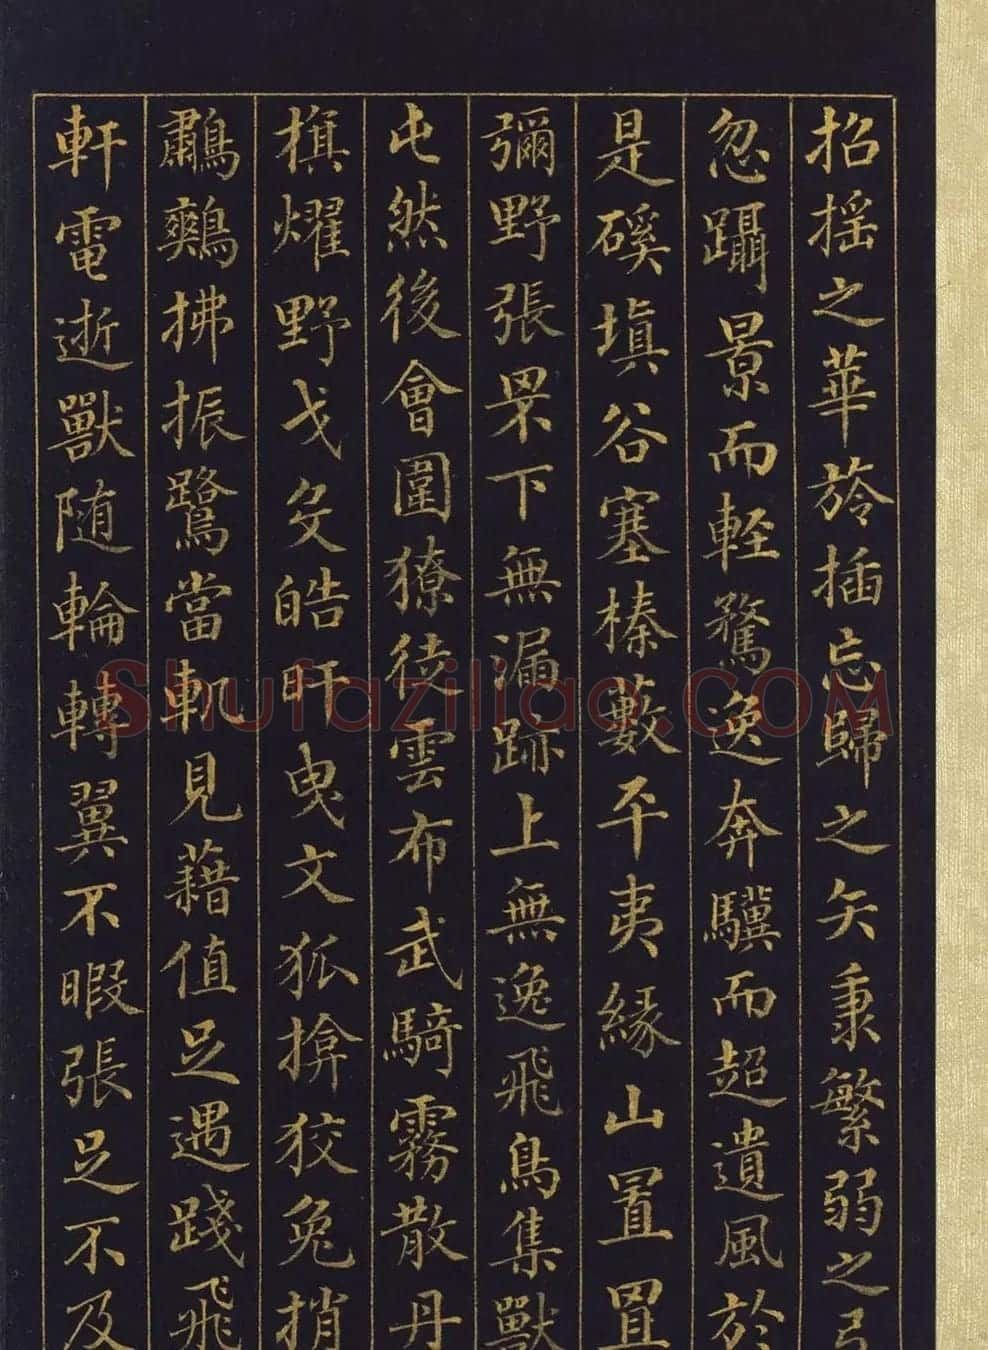 招揺之華旍插忘歸之矢秉繁弱之弓
忽躡景而軽騖逸奔驥而超遺風於
是磎填谷塞榛藪平夷緣山置罝
彌野張罘下無漏跡上無逸飛鳥集獸
屯然後會圍獠徒雲布武騎霧散丹
旗燿野戈殳皓旰曳文狐揜狡兔捎
鷫鷞拂振鷺當軌見藉值足遇踐飛
軒電逝獸随輪轉翼不暇張足不及
Shufaziliao.COM